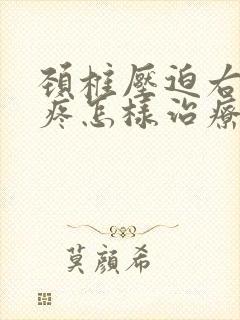 頚椎壓迫右
疼怎樣治療
莫顏希